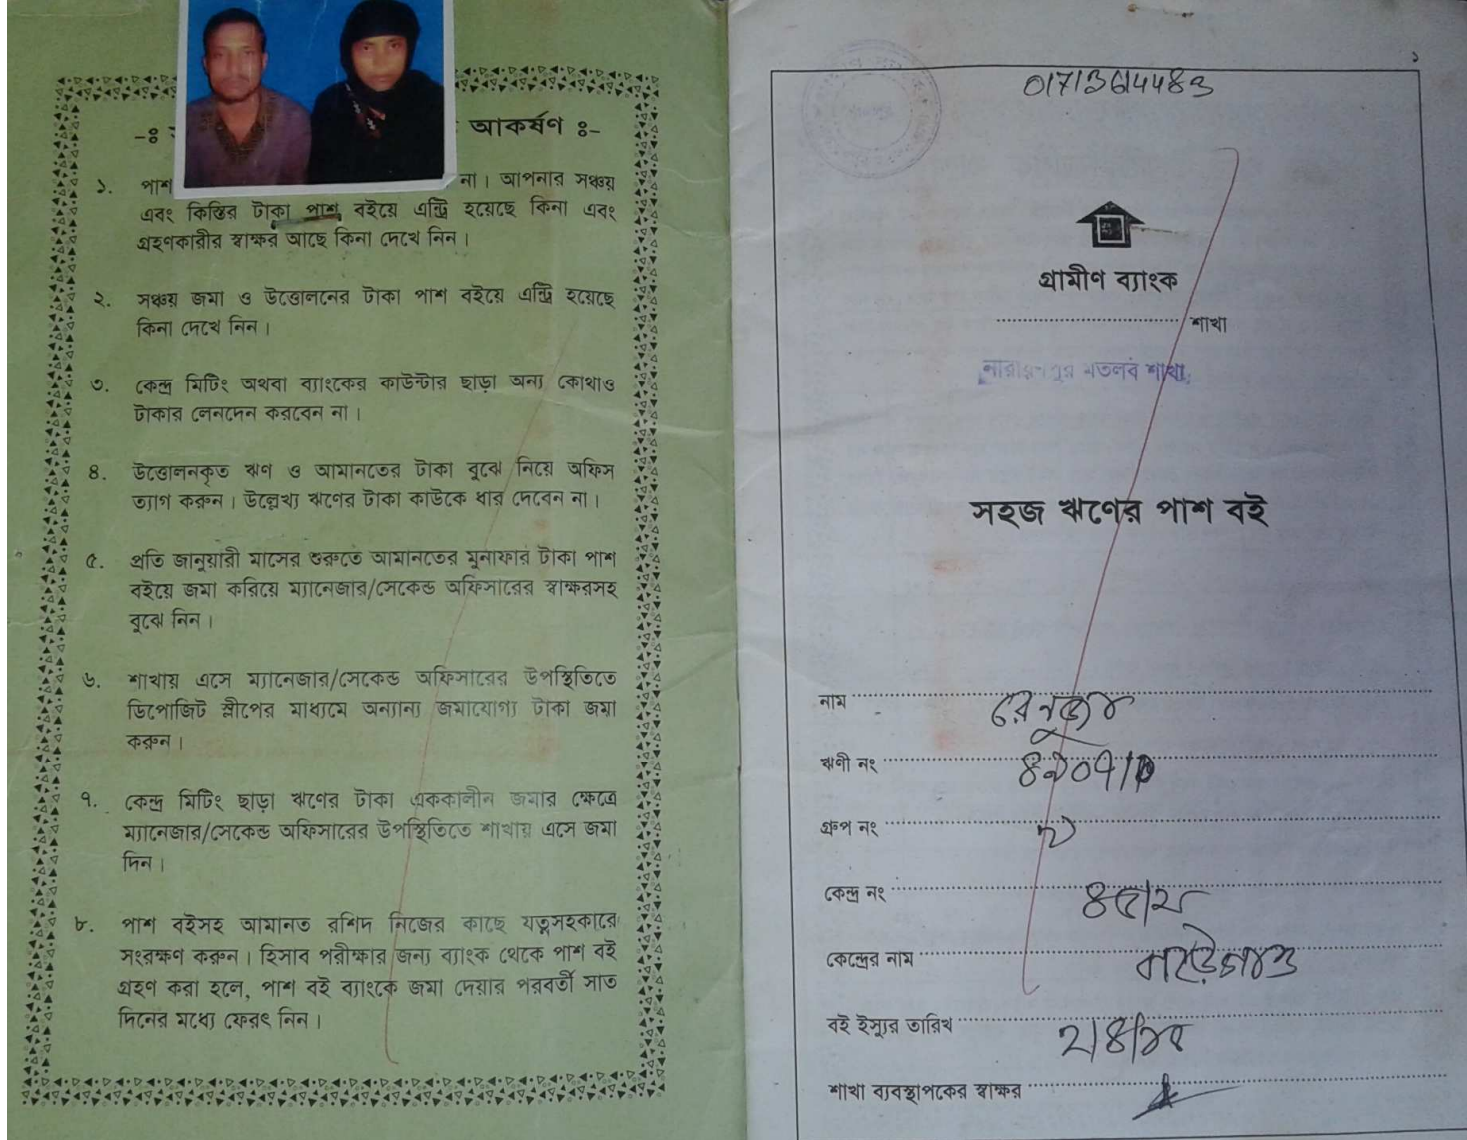 -ঃ আকর্ষণ ঃ-
১. পাশ না। আপনার সঞ্চয়
এবং কিস্তির টাকা পাশ বইয়ে এন্ট্রি হয়েছে কিনা এবং
গ্রহণকারীর স্বাক্ষর আছে কিনা দেখে নিন।
২. সঞ্চয় জমা ও উত্তোলনের টাকা পাশ বইয়ে এন্ট্রি হয়েছে
কিনা দেখে নিন।
৩. কেন্দ্র মিটিং অথবা ব্যাংকের কাউন্টার ছাড়া অন্য কোথাও
টাকার লেনদেন করবেন না।
৪. উত্তোলনকৃত ঋণ ও আমানতের টাকা বুঝে নিয়ে অফিস
ত্যাগ করুন। উল্লেখ্য ঋণের টাকা কাউকে ধার দেবেন না।
৫. প্রতি জানুয়ারী মাসের শুরুতে আমানতের মুনাফার টাকা পাশ
বইয়ে জমা করিয়ে ম্যানেজার/সেকেন্ড অফিসারের স্বাক্ষরসহ
বুঝে নিন।
৬. শাখায় এসে ম্যানেজার/সেকেন্ড অফিসারের উপস্থিতিতে
ডিপোজিট স্লীপের মাধ্যমে অন্যান্য জমাযোগ্য টাকা জমা
করুন।
৭. কেন্দ্র মিটিং ছাড়া ঋণের টাকা এককালীন জমার ক্ষেত্রে
ম্যানেজার/সেকেন্ড অফিসারের উপস্থিতিতে শাখায় এসে জমা
দিন।
৮. পাশ বইসহ আমানত রশিদ নিজের কাছে যত্নসহকারে
সংরক্ষণ করুন। হিসাব পরীক্ষার জন্য ব্যাংক থেকে পাশ বই
গ্রহণ করা হলে, পাশ বই ব্যাংকে জমা দেয়ার পরবর্তী সাত
দিনের মধ্যে ফেরৎ নিন।
১
গ্রামীণ ব্যাংক
শাখা
নারায়নপুর মতলব শাখা
সহজ ঋণের পাশ বই
নাম
ঋণী নং
গ্রুপ নং ২
কেন্দ্র নং
কেন্দ্রের নাম
বই ইস্যুর তারিখ
শাখা ব্যবস্থাপকের স্বাক্ষর